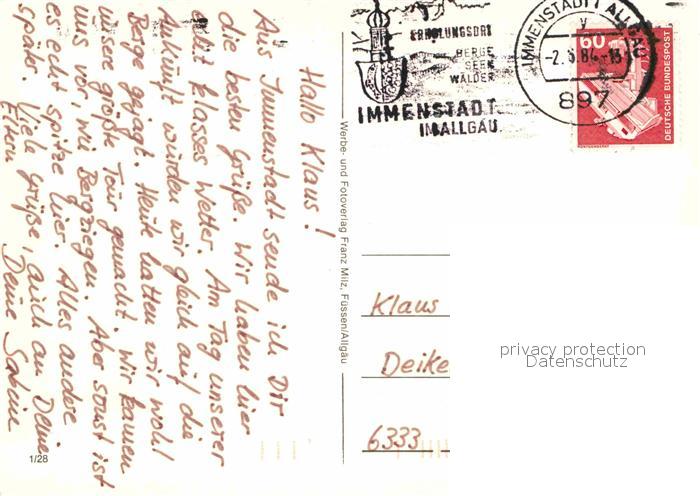 Hallo Klaus!
Aus Immenstadt sende ich Dir
die besten Grüße. Wir haben hier
echt klasses Wetter. Am Tag unserer
Ankunft wurden wir gleich auf die
Berge gejagt. Heute hatten wir wohl
unsere größte Tour gemacht. Wir kamen
uns vor, wie Bergziegen. Aber sonst ist
es echt spitze hier. Alles andere
später. Viele Grüße, auch an Deine
Eltern Deine Sabine
1/28
Werbe- und Fotoverlag Franz Milz, Füssen/Allgäu
ERHOLUNGSORT
BERGE
SEEN
WÄLDER
IMMENSTADT
IM ALLGÄU
IMMENSTADT I ALLGÄU
v
-2.6.84-15
897
60
DEUTSCHE BUNDESPOST
Klaus
Deike
6333
privacy protection
Datenschutz